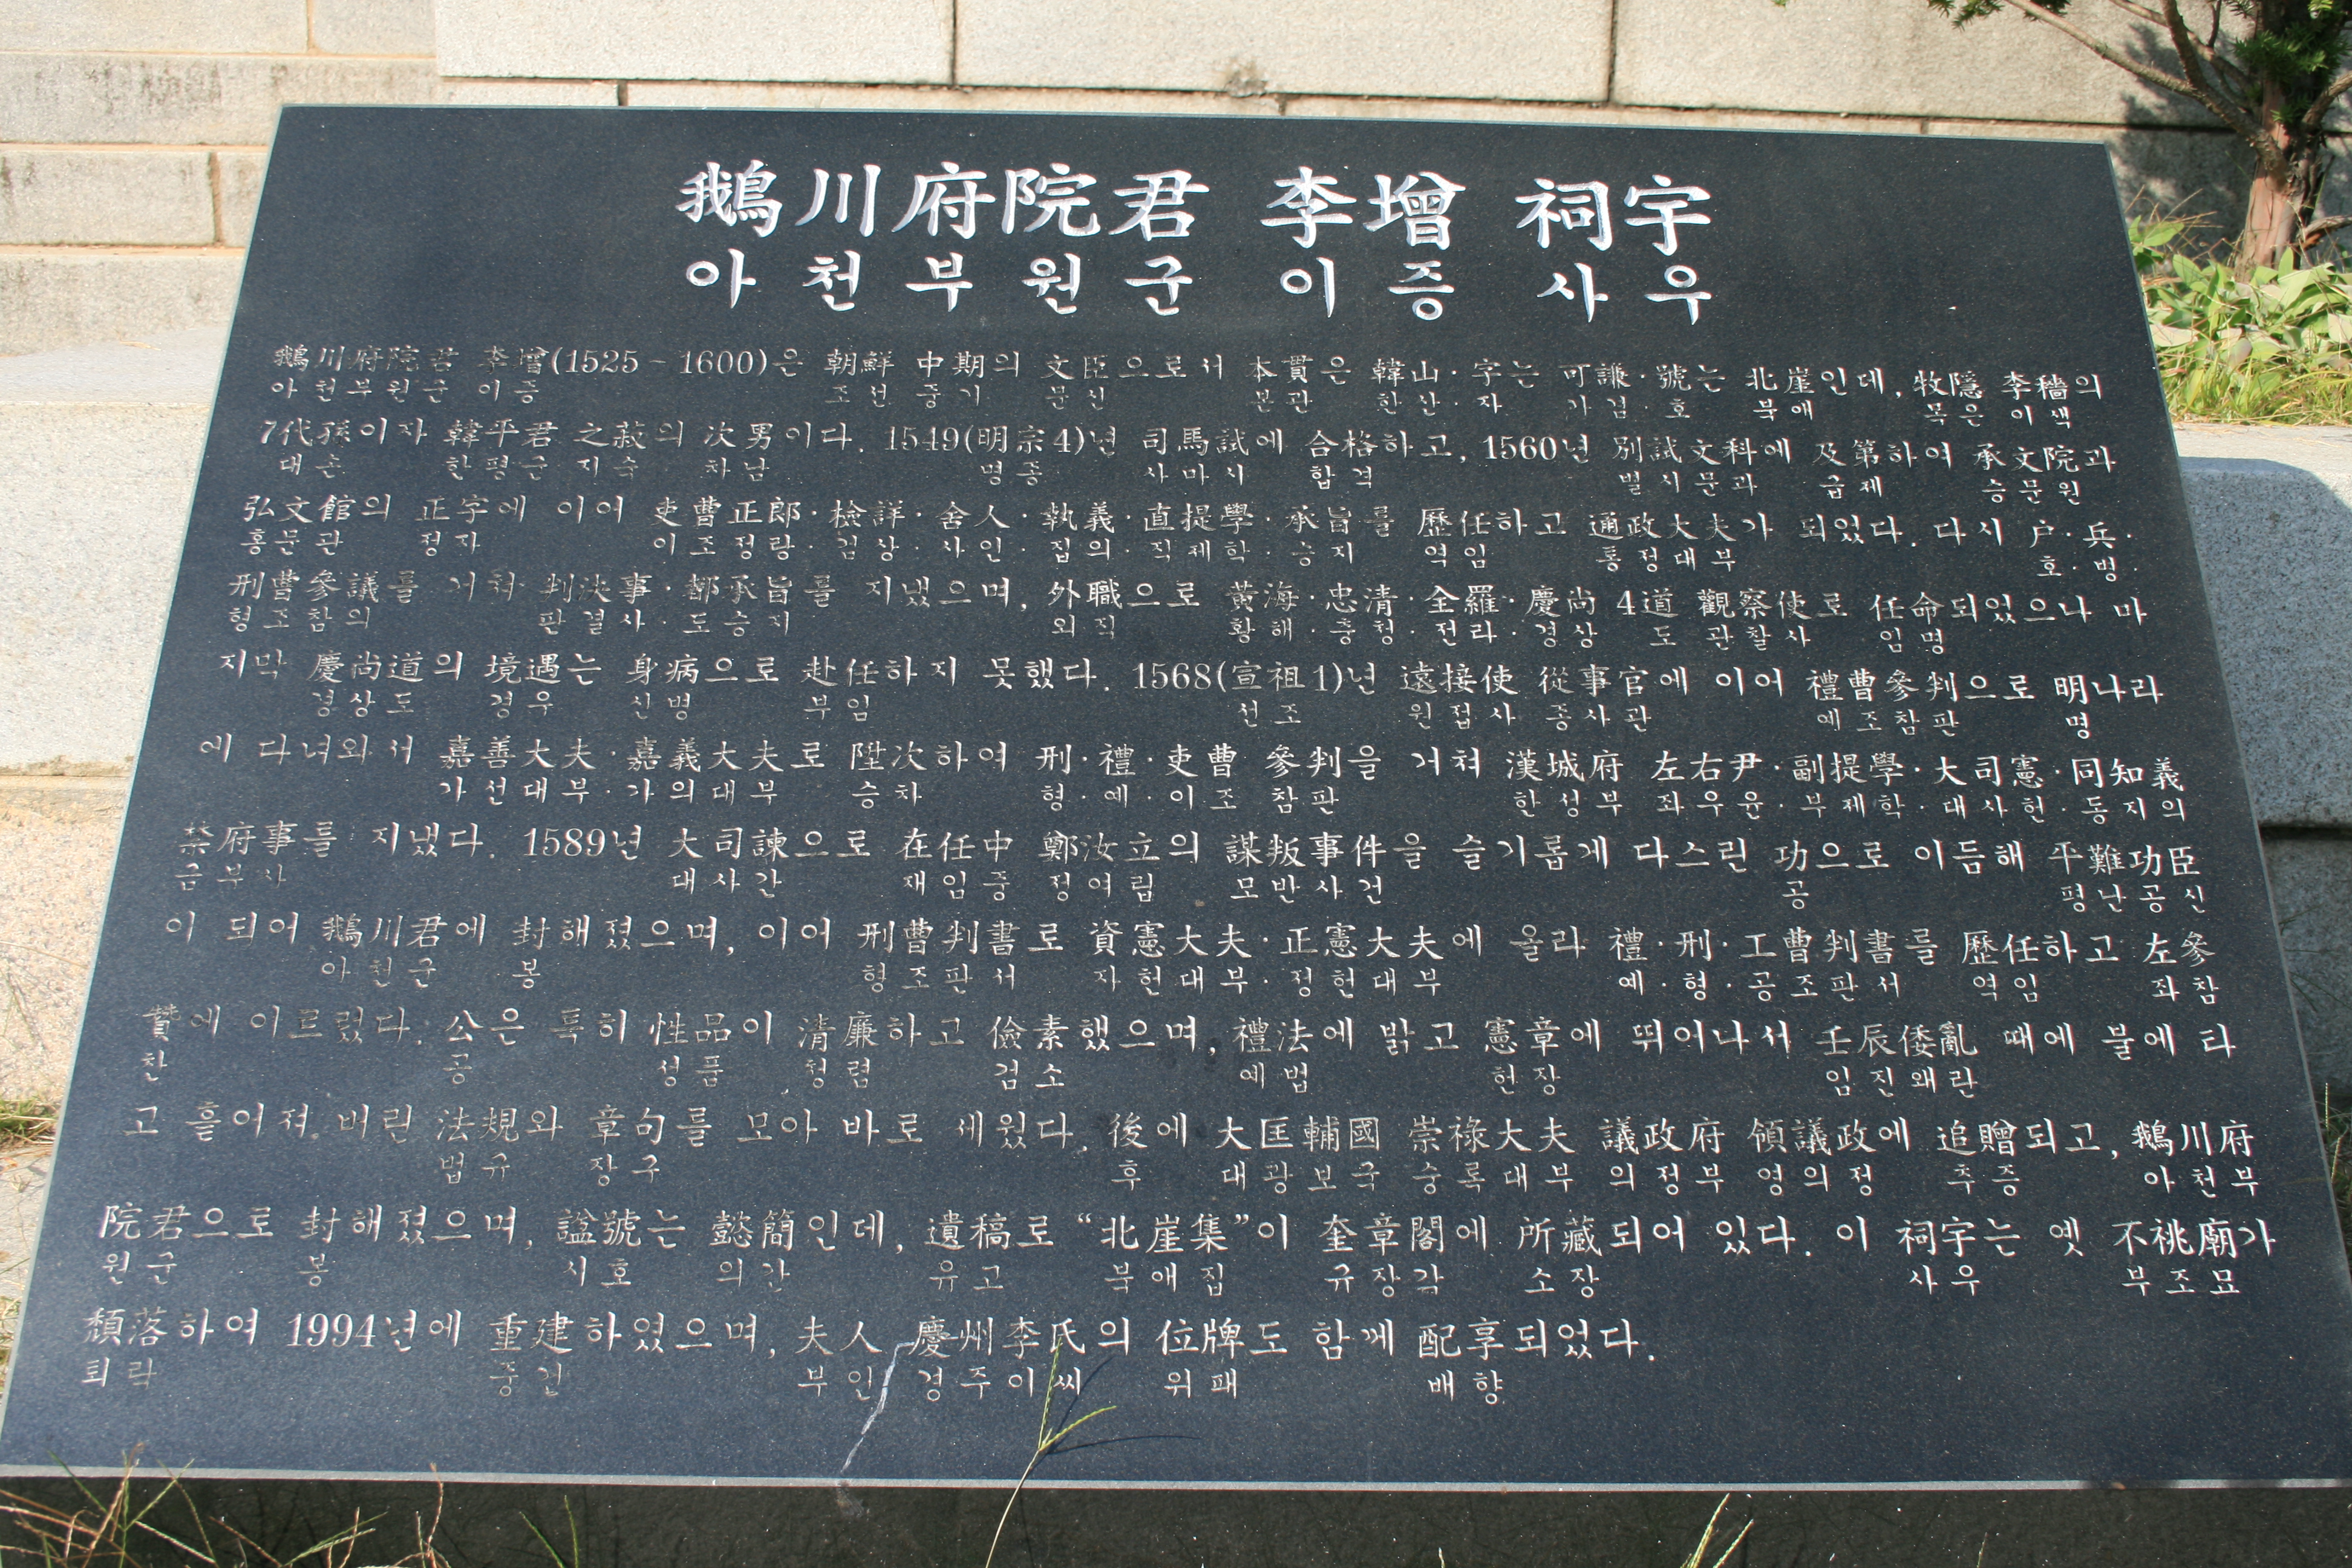 鵝川府院君 李增 祠宇
아천부원군 이증 사우
鵝川府院君 李增(1525-1600)은 朝鮮 中期의 文臣으로서 本貫은 韓山·字는 可謙·號는 北崖인데, 牧隱 李穡의
아천부원군 이증 조선 중기 문신 본관 한산·자 가겸·호 북애 목은 이색
7代孫이자 韓平君 之菽의 次男이다. 1549(明宗4)년 司馬試에 合格하고, 1560년 別試文科에 及第하여 承文院과
대손 한평군 지숙 차남 명종 사마시 합격 별시문과 급제 승문원
弘文館의 正字에 이어 吏曹正郎·檢詳·舍人·執義·直提學·承旨를 歷任하고 通政大夫가 되었다. 다시 户·兵·
홍문관 정자 이조정랑·검상·사인·집의·직제학·승지 역임 통정대부 호·병·
刑曹參議를 거쳐 判決事·都承旨를 지냈으며, 外職으로 黃海·忠清·全羅·慶尚 4道 觀察使로 任命되었으나 마
형조참의 판결사·도승지 외직 황해·충청·전라·경상 도 관찰사 임명
지막 慶尚道의 境遇는 身病으로 赴任하지 못했다. 1568(宣祖1)년 遠接使 從事官에 이어 禮曹參判으로 明나라
경상도 경우 신병 부임 선조 원접사 종사관 예조참판 명
에 다녀와서 嘉善大夫·嘉義大夫로 陞次하여 刑·禮·吏曹 參判을 거쳐 漢城府 左右尹·副提學·大司憲·同知義
가선대부·가의대부 승차 형·예·이조 참판 한성부 좌우윤·부제학·대사헌·동지의
禁府事를 지냈다. 1589년 大司諫으로 在任中 鄭汝立의 謀叛事件을 슬기롭게 다스린 功으로 이듬해 平難功臣
금부사 대사간 재임중 정여립 모반사건 공 평난공신
이 되어 鵝川君에 封해졌으며, 이어 刑曹判書로 資憲大夫·正憲大夫에 올라 禮·刑·工曹判書를 歷任하고 左參
아천군 봉 형조판서 자헌대부·정헌대부 예·형·공조판서 역임 좌참
贊에 이르렀다. 公은 특히 性品이 清廉하고 儉素했으며, 禮法에 밝고 憲章에 뛰어나서 壬辰倭亂 때에 불에 타
찬 공 성품 청렴 검소 예법 헌장 임진왜란
고 흩어져 버린 法規와 章句를 모아 바로 세웠다. 後에 大匡輔國 崇祿大夫 議政府 領議政에 追贈되고, 鵝川府
법규 장구 후 대광보국 숭록대부 의정부 영의정 추증 아천부
院君으로 封해졌으며, 諡號는 懿簡인데, 遺稿로 “北崖集”이 奎章閣에 所藏되어 있다. 이 祠宇는 옛 不祧廟가
원군 봉 시호 의간 유고 북애집 규장각 소장 사우 부조묘
頹落하여 1994년에 重建하였으며, 夫人 慶州李氏의 位牌도 함께 配享되었다.
퇴락 중건 부인 경주이씨 위패 배향